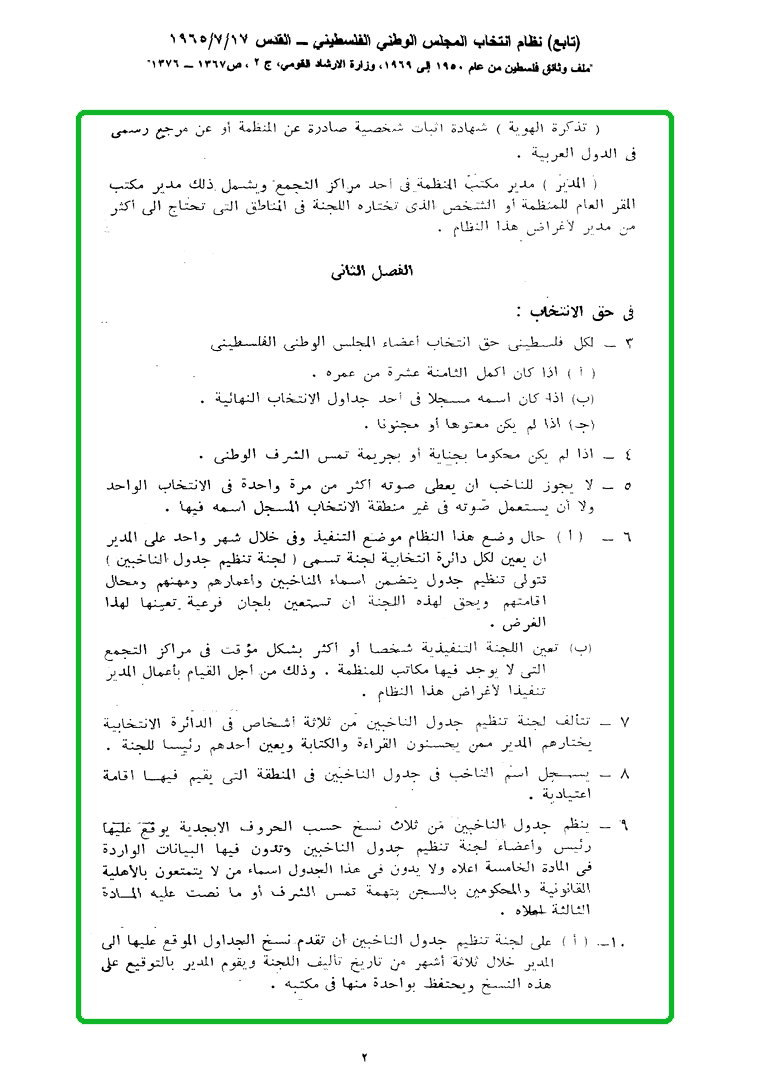 (تابع) نظام انتخاب المجلس الوطني الفلسطيني ــ القدس ١٩٦٥/٧/١٧
"ملف وثائق فلسطين من عام ١٩٥٠ إلى ١٩٦٩، وزارة الارشاد القومي، ج ٢ ، ص١٣٦٧ ــ ١٣٧٦"
( تذكرة الهوية ) شهادة اثبات شخصية صادرة عن المنظمة أو عن مرجع رسمى
فى الدول العربية .
( المدير ) مدير مكتب المنظمة فى أحد مراكز التجمع ويشمل ذلك مدير مكتب
المقر العام للمنظمة أو الشخص الذى تختاره اللجنة فى المناطق التى تحتاج الى أكثر
من مدير لأغراض هذا النظام .
الفصل الثانى
فى حق الانتخاب :
٣ ــ لكل فلسطينى حق انتخاب أعضاء المجلس الوطنى الفلسطينى
( أ ) اذا كان اكمل الثامنة عشرة من عمره .
(ب) اذا كان اسمه مسجلا فى أحد جداول الانتخاب النهائية .
(جـ) اذا لم يكن معتوها أو مجنونا .
٤ ــ اذا لم يكن محكوما بجناية أو بجريمة تمس الشرف الوطنى .
٥ ــ لا يجوز للناخب ان يعطى صوته أكثر من مرة واحدة فى الانتخاب الواحد
ولا أن يستعمل صوته فى غير منطقة الانتخاب المسجل اسمه فيها .
٦ ــ ( أ ) حال وضع هذا النظام موضع التنفيذ وفى خلال شهر واحد على المدير
ان يعين لكل دائرة انتخابية لجنة تسمى ( لجنة تنظيم جدول الناخبين )
تتولى تنظيم جدول يتضمن اسماء الناخبين واعمارهم ومهنهم ومحال
اقامتهم ويحق لهذه اللجنة ان تستعين بلجان فرعية تعينها لهذا
الغرض .
(ب) تعين اللجنة التنفيذية شخصا أو أكثر بشكل مؤقت فى مراكز التجمع
التى لا يوجد فيها مكاتب للمنظمة . وذلك من أجل القيام بأعمال المدير
تنفيذا لأغراض هذا النظام .
٧ ــ تتألف لجنة تنظيم جدول الناخبين من ثلاثة أشخاص فى الدائرة الانتخابية
يختارهم المدير ممن يحسنون القراءة والكتابة ويعين أحدهم رئيسا للجنة .
٨ ــ يسجل اسم الناخب فى جدول الناخبين فى المنطقة التى يقيم فيها اقامة
اعتيادية .
٩ ــ ينظم جدول الناخبين من ثلاث نسخ حسب الحروف الابجدية يوقع عليها
رئيس وأعضاء لجنة تنظيم جدول الناخبين وتدون فيها البيانات الواردة
فى المادة الخامسة اعلاه ولا يدون فى هذا الجدول اسماء من لا يتمتعون بالأهلية
القانونية والمحكومين بالسجن بتهمة تمس الشرف أو ما نصت عليه المادة
الثالثة اعلاه .
١٠ــ ( أ ) على لجنة تنظيم جدول الناخبين ان تقدم نسخ الجداول الموقع عليها الى
المدير خلال ثلاثة أشهر من تاريخ تأليف اللجنة ويقوم المدير بالتوقيع على
هذه النسخ ويحتفظ بواحدة منها فى مكتبه .
٢